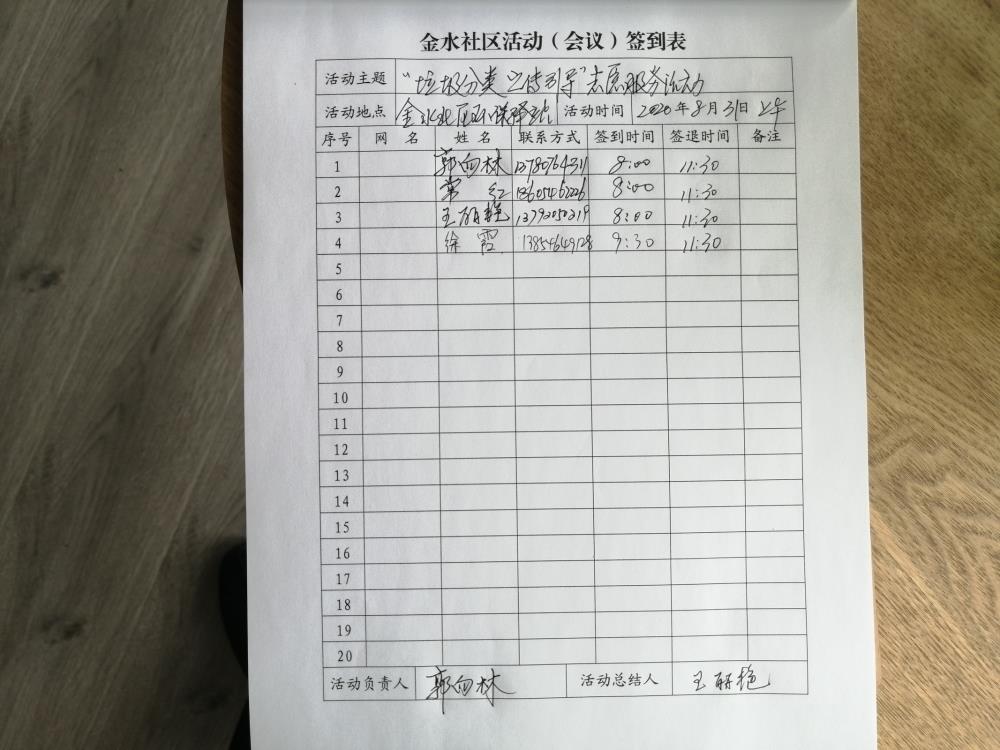 金水社区活动（会议）签到表
活动主题 “垃圾分类 宣传引导”志愿服务活动
活动地点 金水社区环保驿站 活动时间 2020年8月31日上午
序号 网名 姓名 联系方式 签到时间 签退时间 备注
1 郭向林 8:00 11:30
2 常红 18605462226 8:00 11:30
3 王丽艳 8:00 11:30
4 徐霞 13854649128 9:30 11:30
5
6
7
8
9
10
11
12
13
14
15
16
17
18
19
20
活动负责人 郭向林 活动总结人 王丽艳